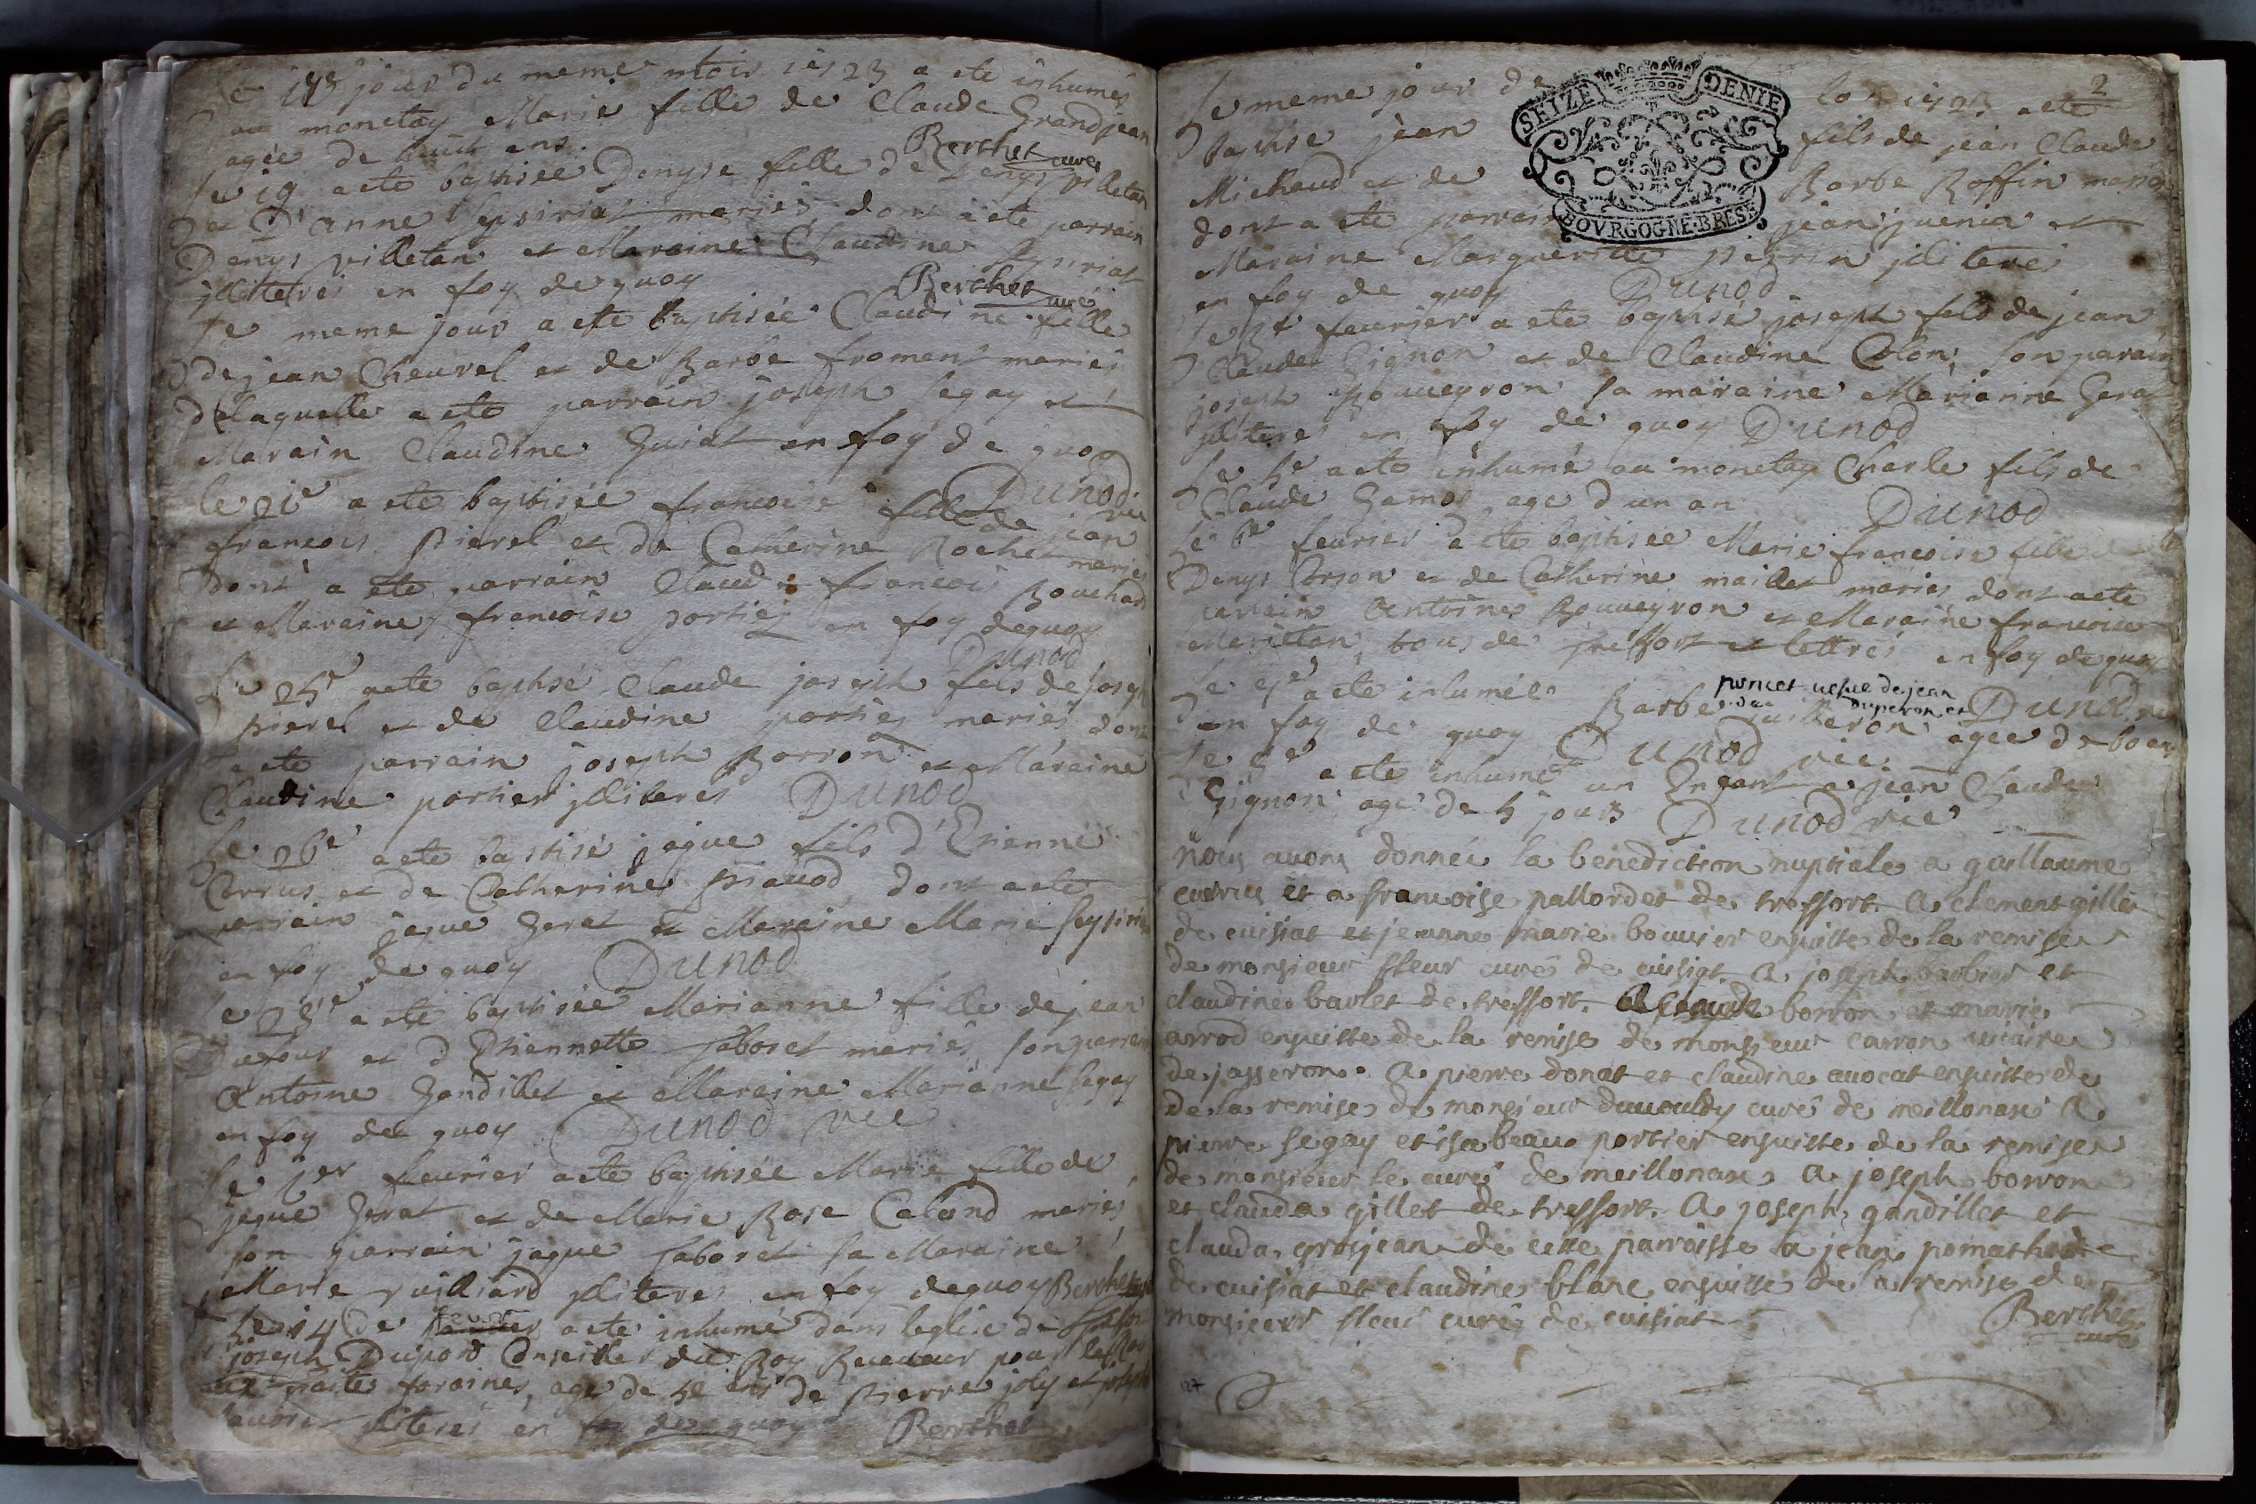 jour du meme mois 1723 a ete inhumée
au monetay Marie fille de Claude Grandjean
agée de huit ans. Berchet curé
le 19 a ete baptisée Denyse fille de Denys villetan
et d'anne Seysiriat mariés, dont a ete parrain
Denys villetan et Maraine Claudine Seysiriat
jlliterés en foy de quoy Berchet curé
le meme jour a ete baptisée Claudine fille
de jean Cheurel et de Barbe froment mariés
delaquelle a ete parrain joseph Segay et
Marain Claudine Guiat en foy de quoy
Dunod vic
le 21e a ete baptisée francoise fille de jean
francois Pierel et de Catherine Rochet mariés
dont a ete parrain Claude francois Bouchad
et Maraine francoise portier en foy dequoy
Dunod
Le 25e a ete baptisé Claude joseph fils de joseph
pierel et de Claudine portier mariés dont
a ete parrain joseph Borron et Maraine
Claudine portier jlliterés Dunod
Le 26e a ete baptisé jaque fils d'Etienne
Corrus et de Catherine piauod dont a ete
parrain jaque Gerat et Maraine Marie Seysiriat
en foy de quoy Dunod
Le 28e a ete baptisée Marianne fille de jean
Dufour et d'Etiennette Saboret mariés, son parrain
Antoine Gandillet et Maraine Marianne Segay
en foy de quoy Dunod vic
le 1er feurier a ete baptisée Marie fille de
jaque Gerat et de Marie Rose Caland mariés
son parrain jaque Saboret sa Maraine
Marie vuilliard jlliterés en foy dequoy Berchet curé
Le 14 de feurier a ete inhumé dans leglise de
joseph Dupord Conseiller du Roy Receueur pour le Roy
aux traite foraines, age de ans de pierre joly et
jlliterés en foy de quoy Berchet
2
Le meme jour de 1723 a ete
Baptisé jean fils de jean Claude
Michaud et de Barbe Boffin mariés
dont a ete parrain jean juenin et
Maraine Marguerite perrin jlliterés
en foy de quoy Dunod
SEIZE DENIE
BOVRGOGNE·BRESE
Le feurier a ete baptisé joseph fils de jean
Claude Gignon et de Claudine Colon, son parain
joseph Bouueyron sa maraine Marianne Gerat
jlliterés en foy de quoy Dunod
Le 5e a ete inhumé au monetay Charle fils de
Claude Gamos agé d'un an Dunod
Le 6e feurier a ete baptisée Marie francoise fille de
Denys Corson et de Catherine maillet mariés dont a ete
parrain Antoine Bouueyron et Maraine francoise
Merittan, tous de treffort et lettrés en foy de quoy
Dunod
poncet uefue de jean
duperon et
Le a ete inhumée Barbe agee de 60 ans
en foy de quoy Dunod vic
Le 8e a ete inhumé un Enfant a jean Claude
Gignon agé de 5 jours Dunod vic
nous auons donnée la benediction nuptiale a guillaume
cuvrus et a francoise pallordet de treffort. A clement gillet
de cuisiat et jeanne marie bouuier ensuitte de la remise
de monsieur fleur curé de cuisiat. A joseph barbier et
claudine barlet de treffort. A claude borron et marie
arrod ensuitte de la remise de monsieur carron uicaire
de jasseron. A pierre donat et claudine auocat ensuitte de
de la remise de monsieur duuouldy curé de meillonas A
pierre segay et isabeau portier ensuitte de la remise
de monsieur le curé de meillonas A joseph borron
et clauda gillet de treffort. A joseph gandillet et
clauda grosjean de cette parroisse a jean pomathod
de cuisiat et claudine blanc ensuitte de la remise de
monsieur fleur curé de cuisiat
Berchet
curé